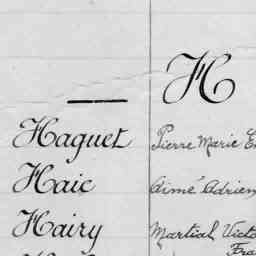 H
Haguet Pierre Marie
Haic Aimé Adrien
Hairy Martial Vict
Fra